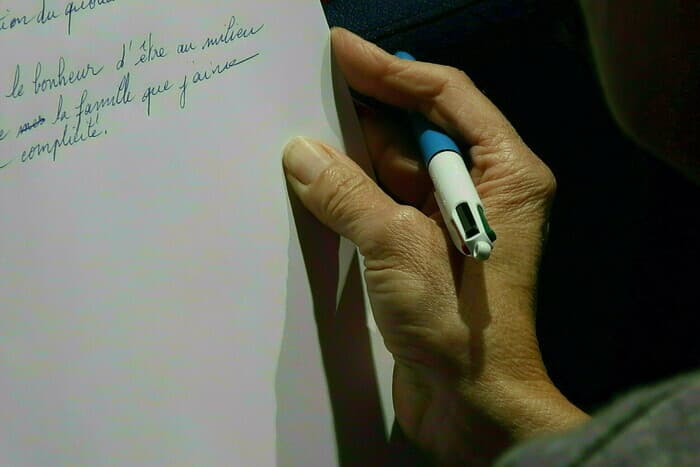 tion du quoti
le bonheur d'être au milieu
la famille que j'aime
complicité.